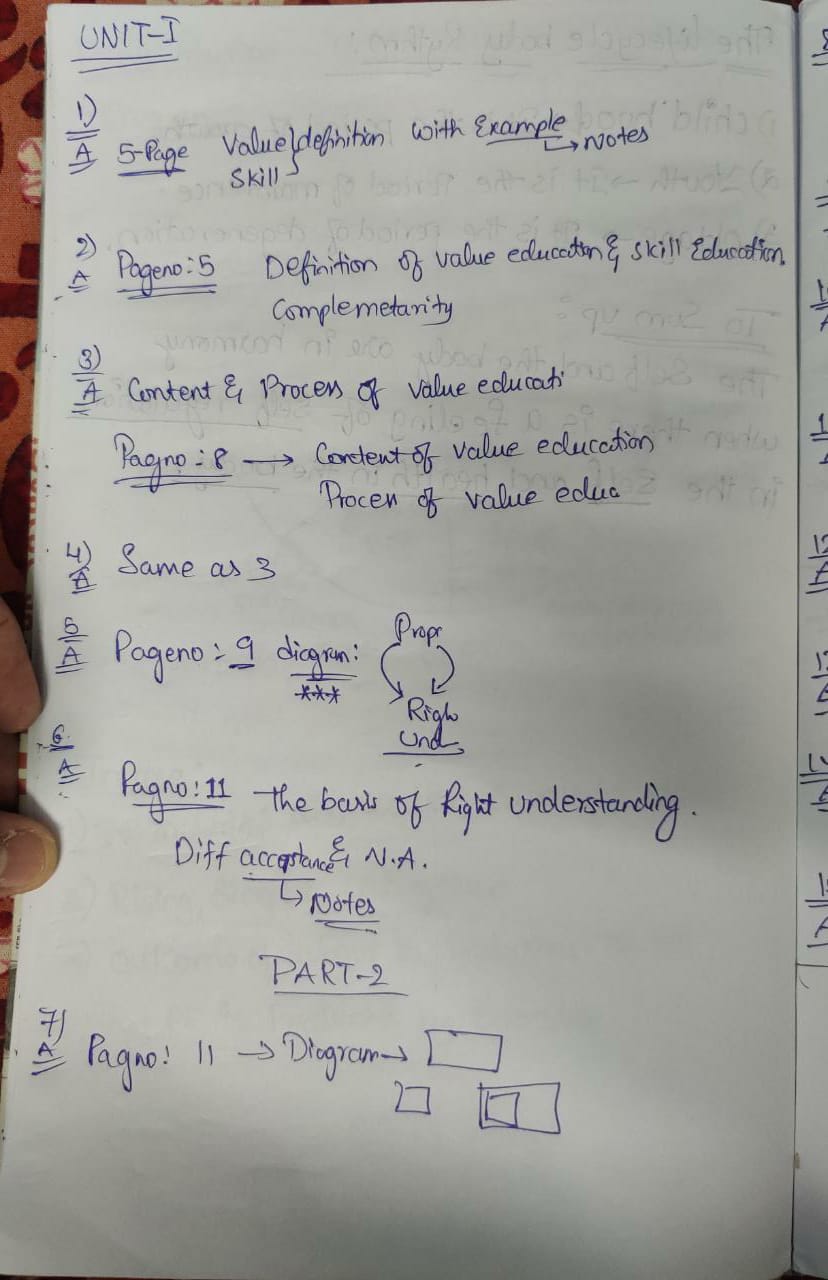 UNIT-I
1)
A 5-Page Value} definition with Example
Skill ↳ Notes
2)
A Pageno: 5 Definition of value education & skill Education
Complemetarity
3)
A Content & Process of value educati
Pagno: 8 → Content of value education
Procen of value educ
4)
A Same as 3
5
A Pageno: 9 diagram: Propr
***
Righ
Und
6
A Pagno: 11 the basis of Right understanding.
Diff acceptance & N.A.
↳ Notes
PART-2
7)
A Pagno: 11 → Diagram →